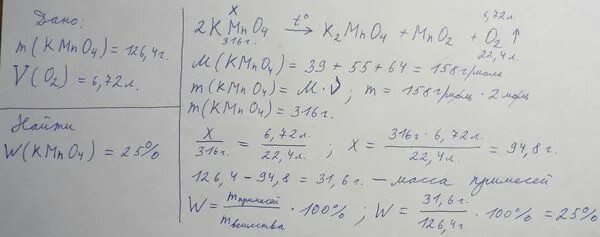 Дано:
m(KMnO4) = 126,4г.
V(O2) = 6,72л.
Найти
W(KMnO4) = 25%
x 6,72л.
2KMnO4 t° → K2MnO4 + MnO2 + O2 ↑
316г. 22,4л.
M(KMnO4) = 39 + 55 + 64 = 158г/моль
m(KMnO4) = M·ν ; m = 158г/моль · 2моль
m(KMnO4) = 316г.
x/316г. = 6,72л./22,4л. ; x = 316г·6,72л./22,4л. = 94,8г.
126,4 - 94,8 = 31,6г - масса примесей
W = mпримесей/mвещества · 100% ; W = 31,6г/126,4г · 100% = 25%